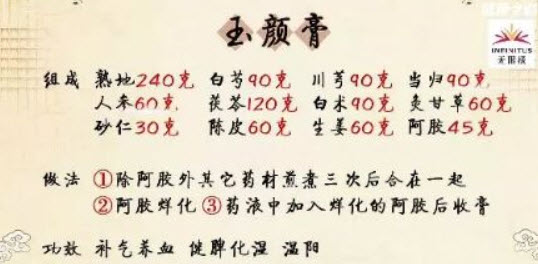 玉颜膏
INFINITUS
无限极
组成 熟地240克 白芍90克 川芎90克 当归90克
人参60克 茯苓120克 白术90克 炙甘草60克
砂仁30克 陈皮60克 生姜60克 阿胶45克
做法 ①除阿胶外其它药材煎煮三次后合在一起
②阿胶烊化 ③药液中加入烊化的阿胶后收膏
功效 补气养血 健脾化湿 温阳